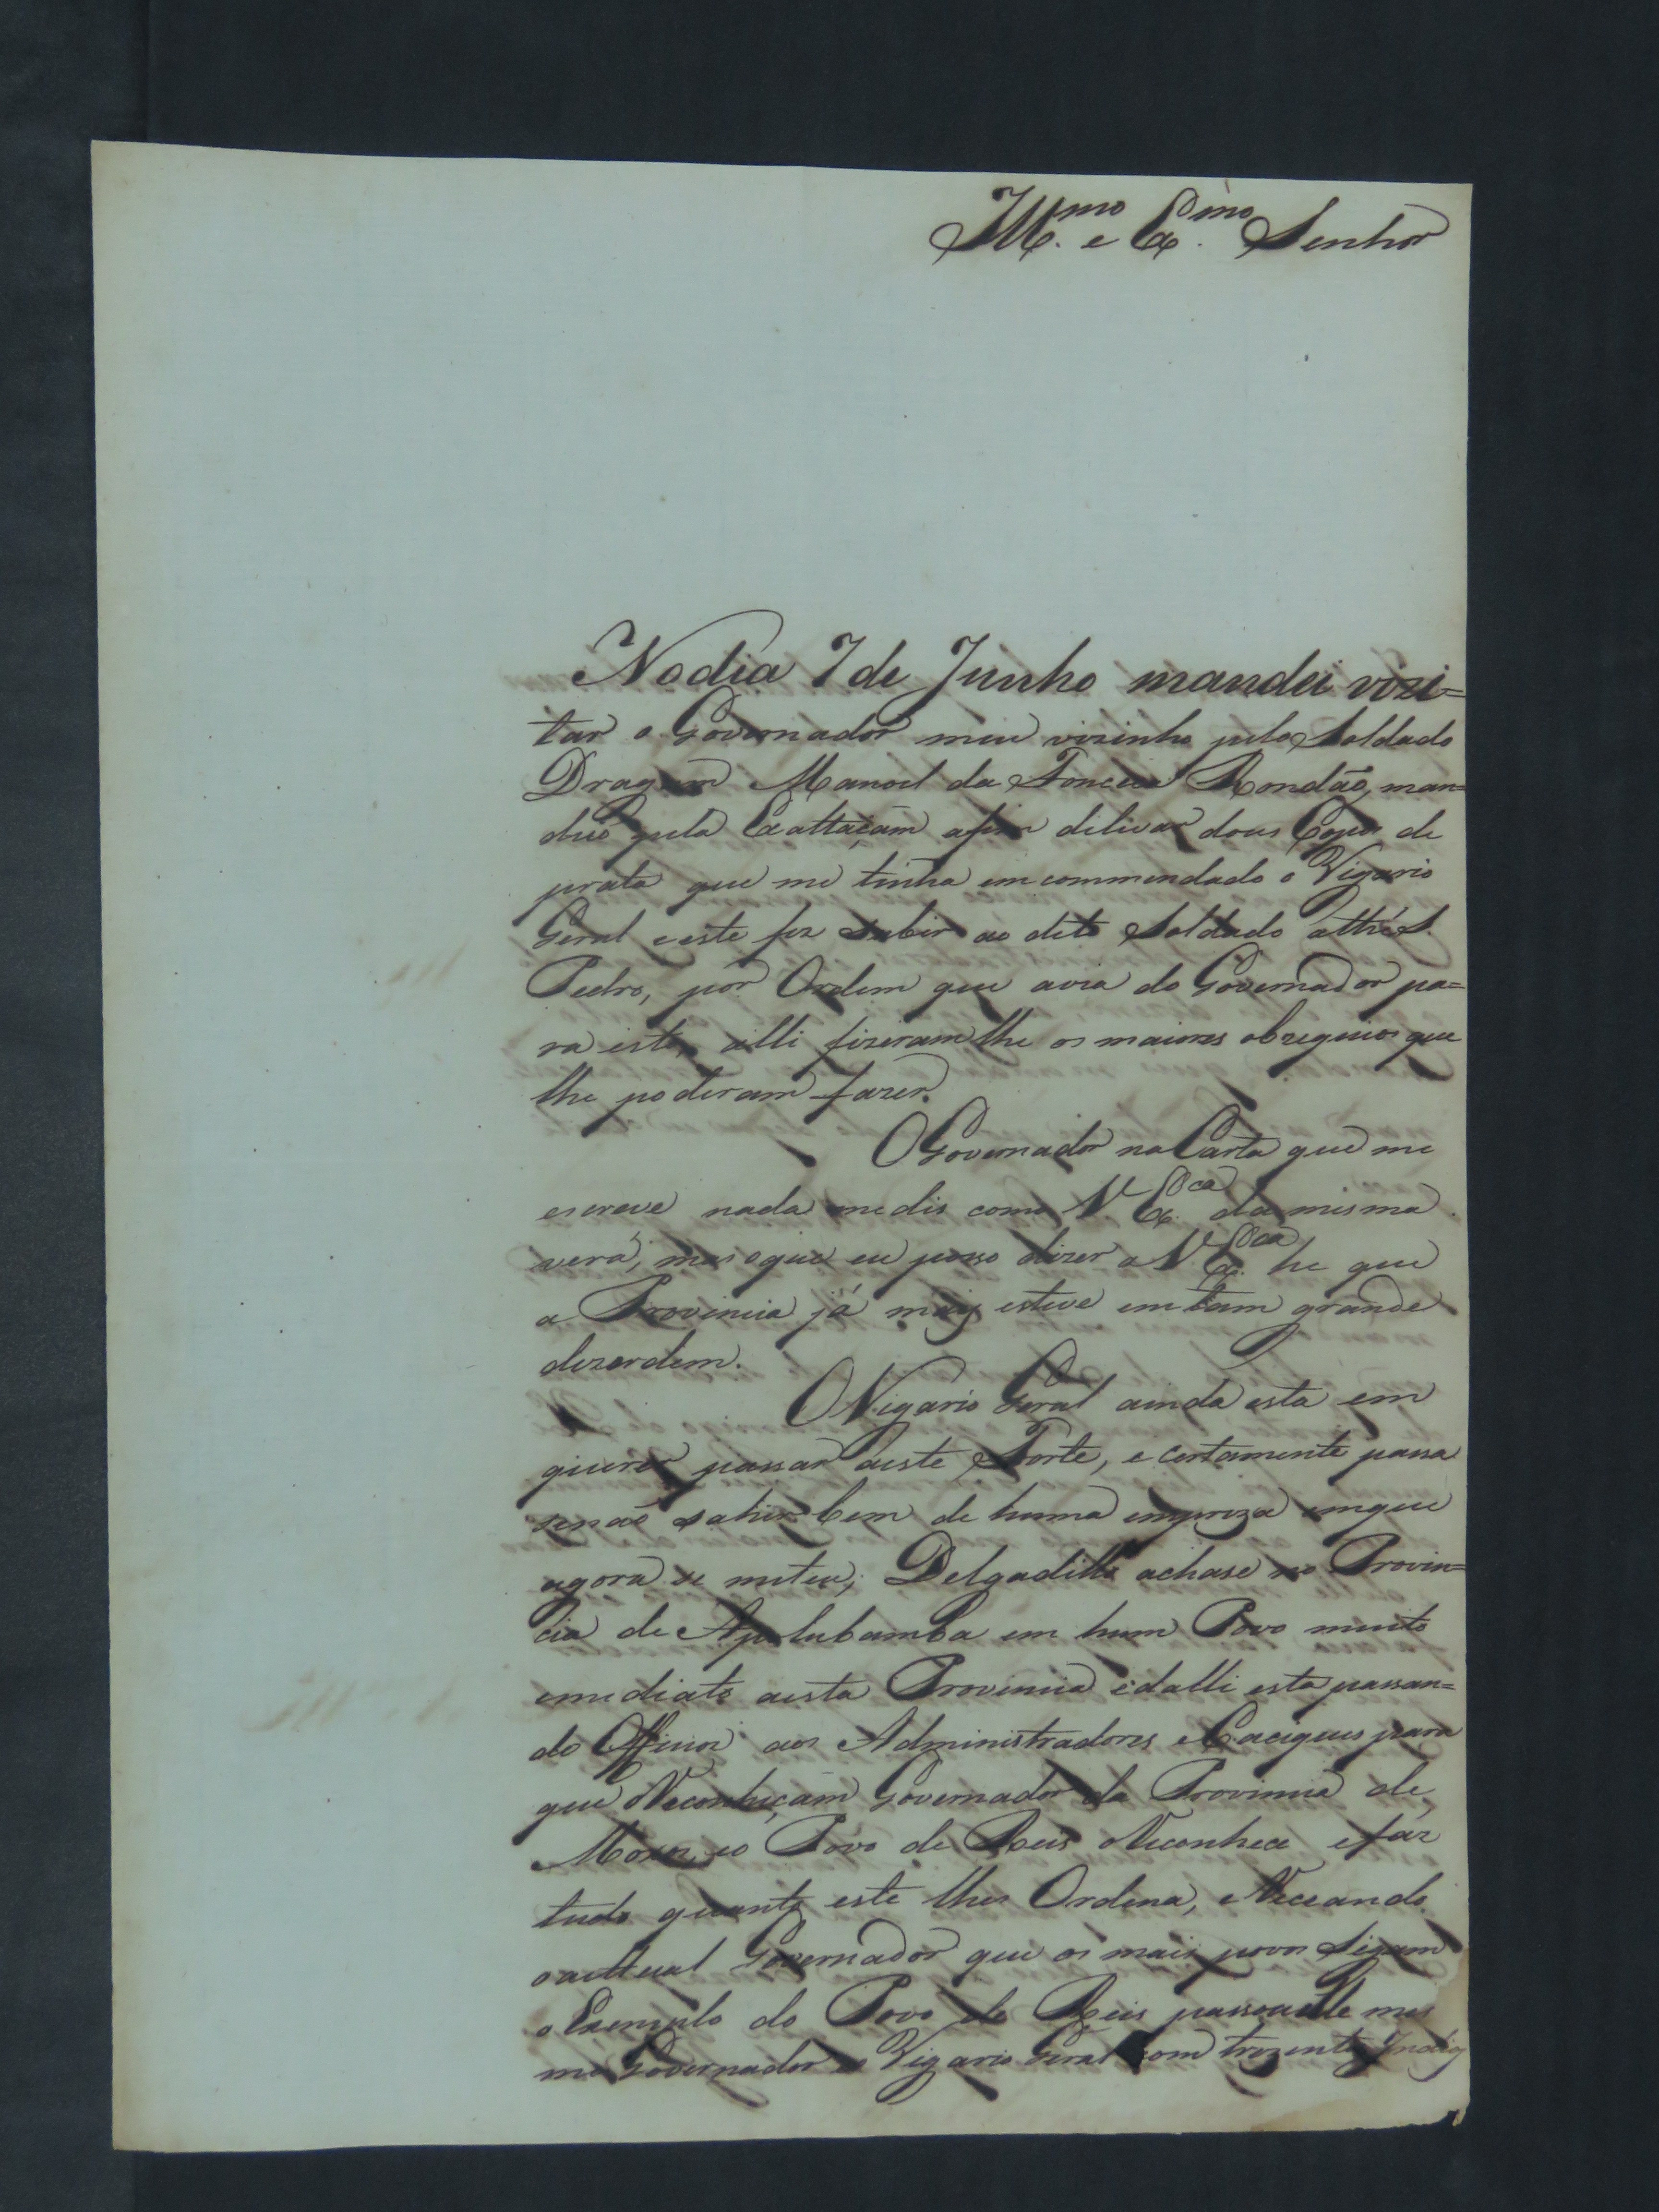 Ill.mo e Ex.mo Senhor
No dia 7 de Junho mandei vizi=
tar o Governador meu vizinho pelo Soldado
Dragam Manoel da Fonceca Rondão, man=
deio pela Exaltaçam afim de livar dous Copos de
prata que me tinha emcommendado o Vigario
Geral e este fez subir ao dito Soldado athé S.
Pedro, por Ordem que avia do Governador pa=
ra isto, alli fizeram lhe os maiores obzequios que
lhe poderam fazer.
O Governador na Carta que me
escreve nada me dis como V. Ex.ca da misma
verá, mas o que eu posso dizer a V. Ex.ca he que
a Provincia já mais esteve em tam grande
dezordem.
O Vigario Geral ainda esta em
querer passar a este Forte, e certamente passa
se não sahir bem de huma empreza em que
agora se meteu; Delgadillo achase na Provin=
cia de Apolubamba em hum Povo muito
emediato a esta Provincia e dalli esta passan=
do Officios aos Administradores e Caciques para
que Reconheçam Governador da Provincia de
Moxos, e o Povo de Reis Reconhece e fáz
tudo quanto este lhes Ordena, e Receando
o acttual Governador que os mais povos Sigam
o Exemplo do Povo de Reis passou elle mes
mo Governador e o Vigario Geral com trezentos Indios